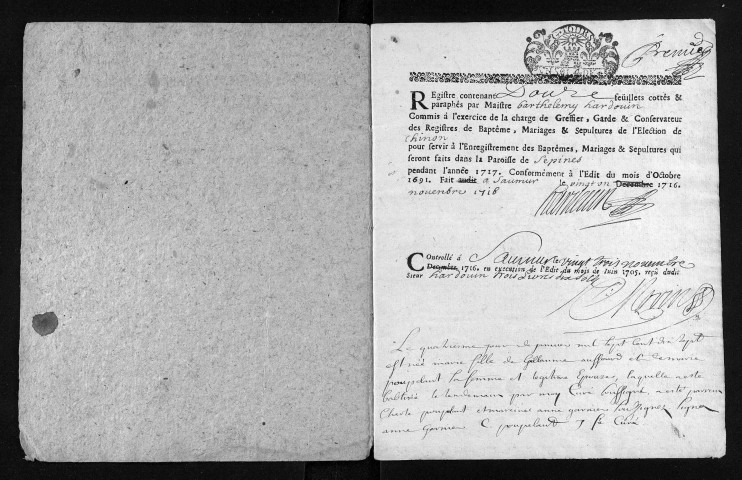 Premier
REgistre contenant Douze feuillets cottés &
paraphés par Maistre barthelemy hardouin
Commis à l'exercice de la charge de Greffier, Garde & Conservateur
des Registres de Baptême, Mariages & Sepultures de l'Election de
chinon
pour servir à l'Enregistrement des Baptêmes, Mariages & Sepultures qui
seront faits dans la Paroisse de Sepines
pendant l'année 1717. Conformément à l'Edit du mois d'Octobre
1691. Fait audit a Saumur le vingt un Decembre 1716.
novembre 1716
hardouin
COntrollé à Saumur le vingt trois novembre
Decembre 1716. en execution de l'Edit du mois de Juin 1705. reçû dudit
Sieur hardouin trois livres
Le quatriesme jour de janvier mil sept cent dix sept
est née marie fille de Guillaume et de marie
poupelant sa femme et legitime Epouse, laquelle a esté
baptisée le lendemain par moy Curé soussigné, a esté parrain
Charle poupelant et maraine anne garnier soussignez
anne Garnier C poupelant Curé